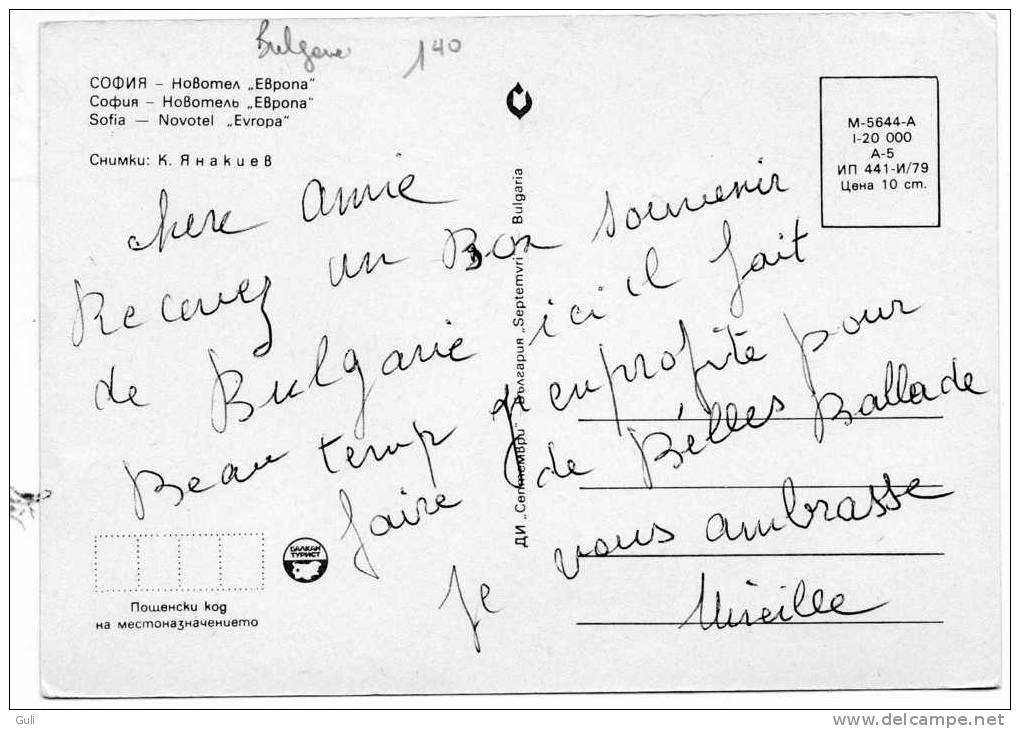 Bulgarie 140
СОФИЯ – Новотел „Европа“
София – Новотель „Европа“
Sofia — Novotel „Evropa“
Снимки: К. Янакиев
М-5644-А
I-20 000
А-5
ИП 441-И/79
Цена 10 ст.
chere Annie
Recevez un Bon souvenir
de Bulgarie ici il fait
Beau temp j'en profite pour
faire de Bèlles Ballade
Je vous ambrasse
Mireille
ДИ „Септември“ – България „Septemvri“ – Bulgaria
БАЛКАН
ТУРИСТ
Пощенски код
на местоназначението
Guli
www.delcampe.net